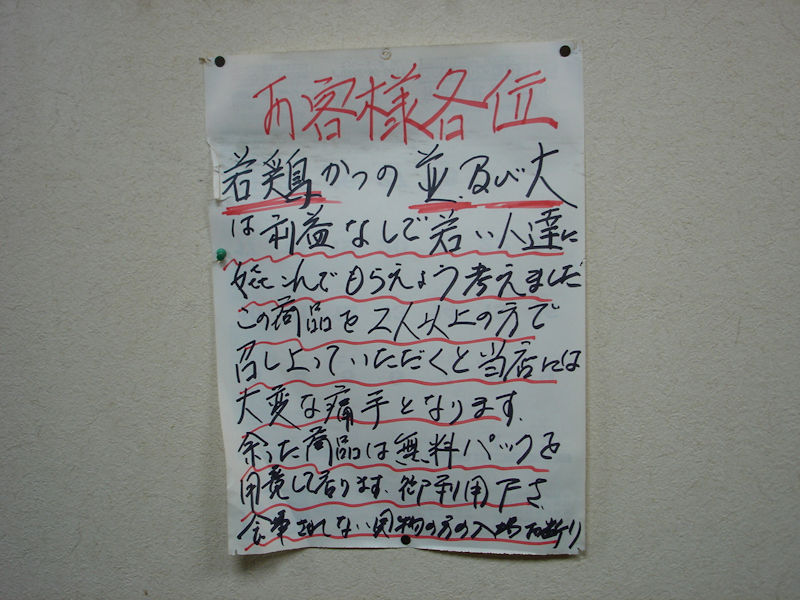 お客様各位
若鶏かつの並.及び大
は利益なしで若い人達に
喜こんでもらえよう考えました
この商品を2人以上の方で
召し上っていただくと当店には
大変な痛手となります.
余った商品は無料パックを
用意して居ります.御利用下さ
食事されない同物の方の入場お断り